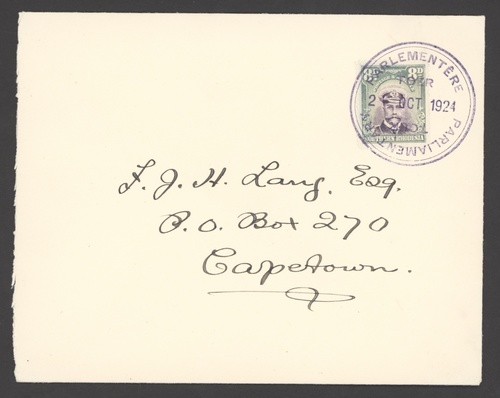 PARLEMENTÊRE
TOER
8D 8D
2 OCT 1924
TOUR
PARLIAMENTARY
SOUTHERN RHODESIA
F. J. H. Lang, Esq.
P.O. Box 270
Capetown.